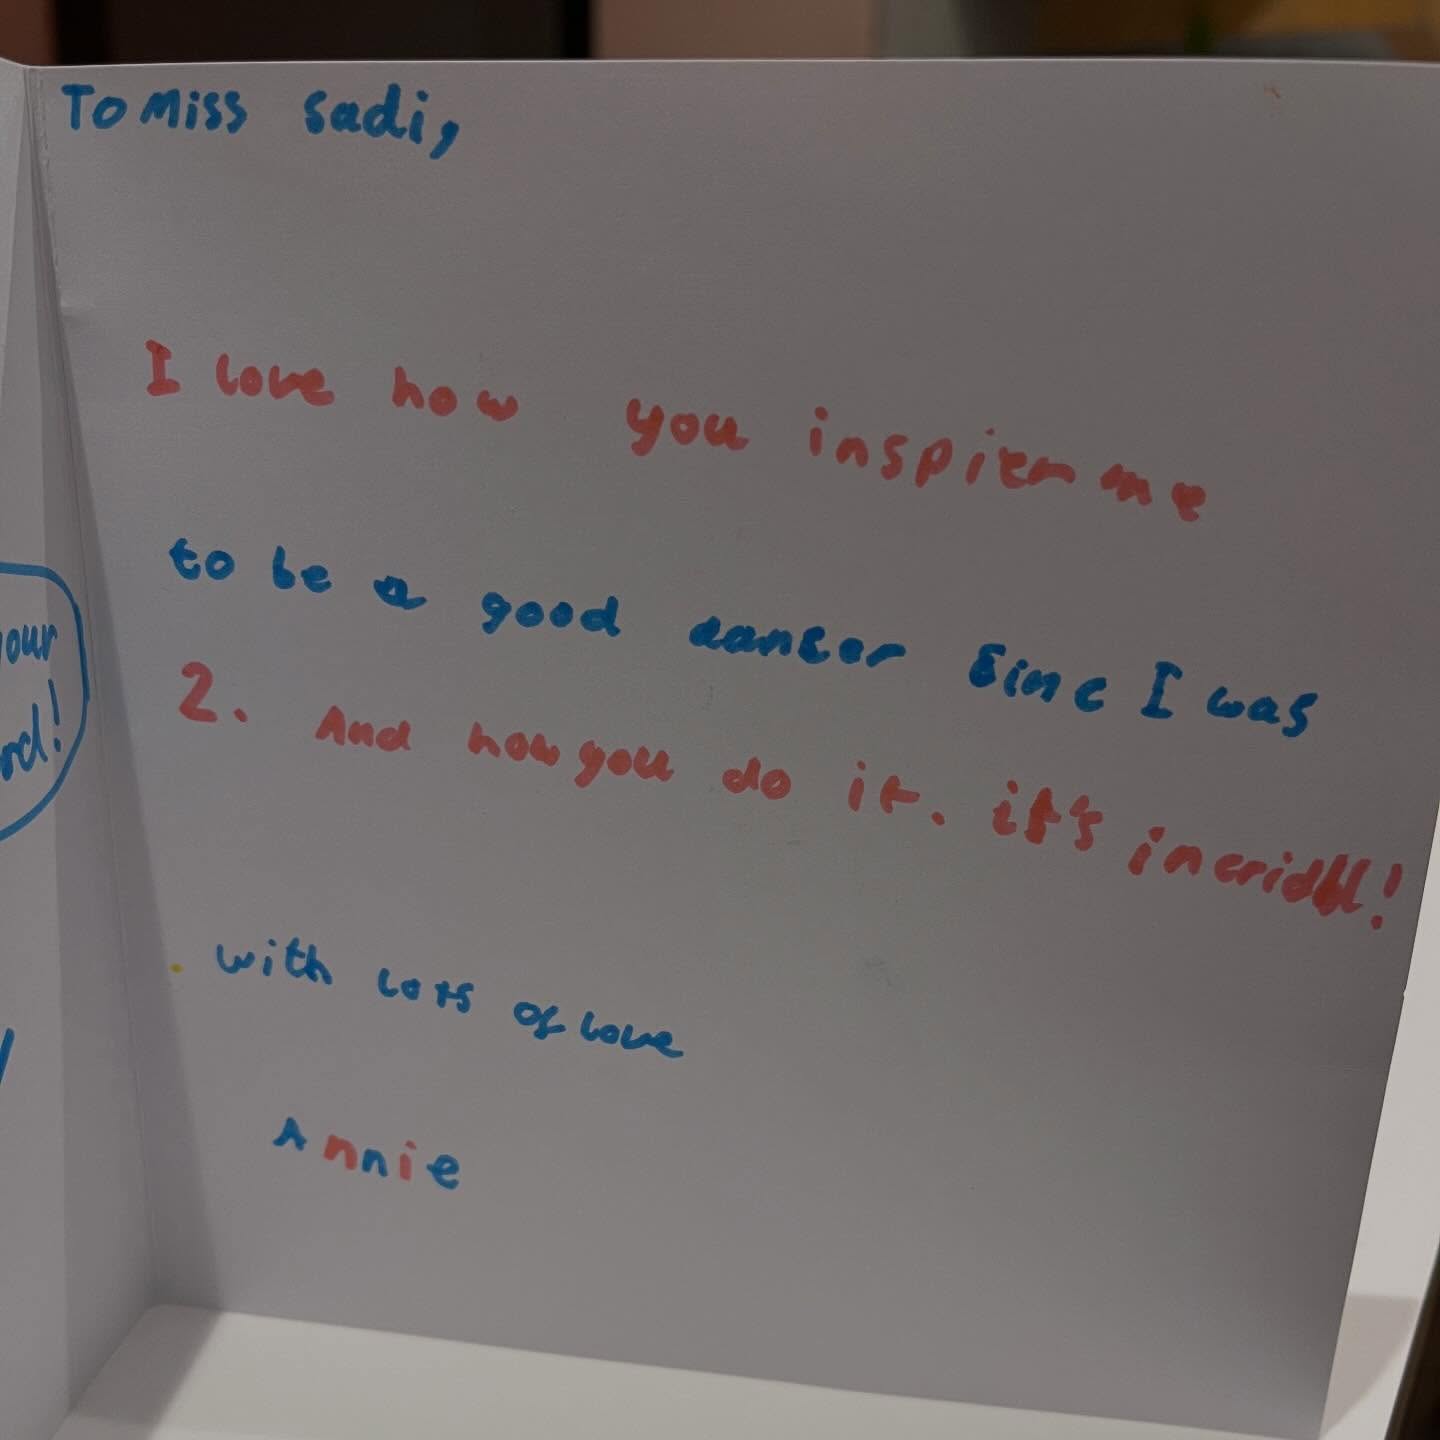 To Miss Sadi,
I love how you inspier me
to be a good danser Sinc I was
2. And how you do it. it's incridbl!
with lots of love
Annie
our
rd!